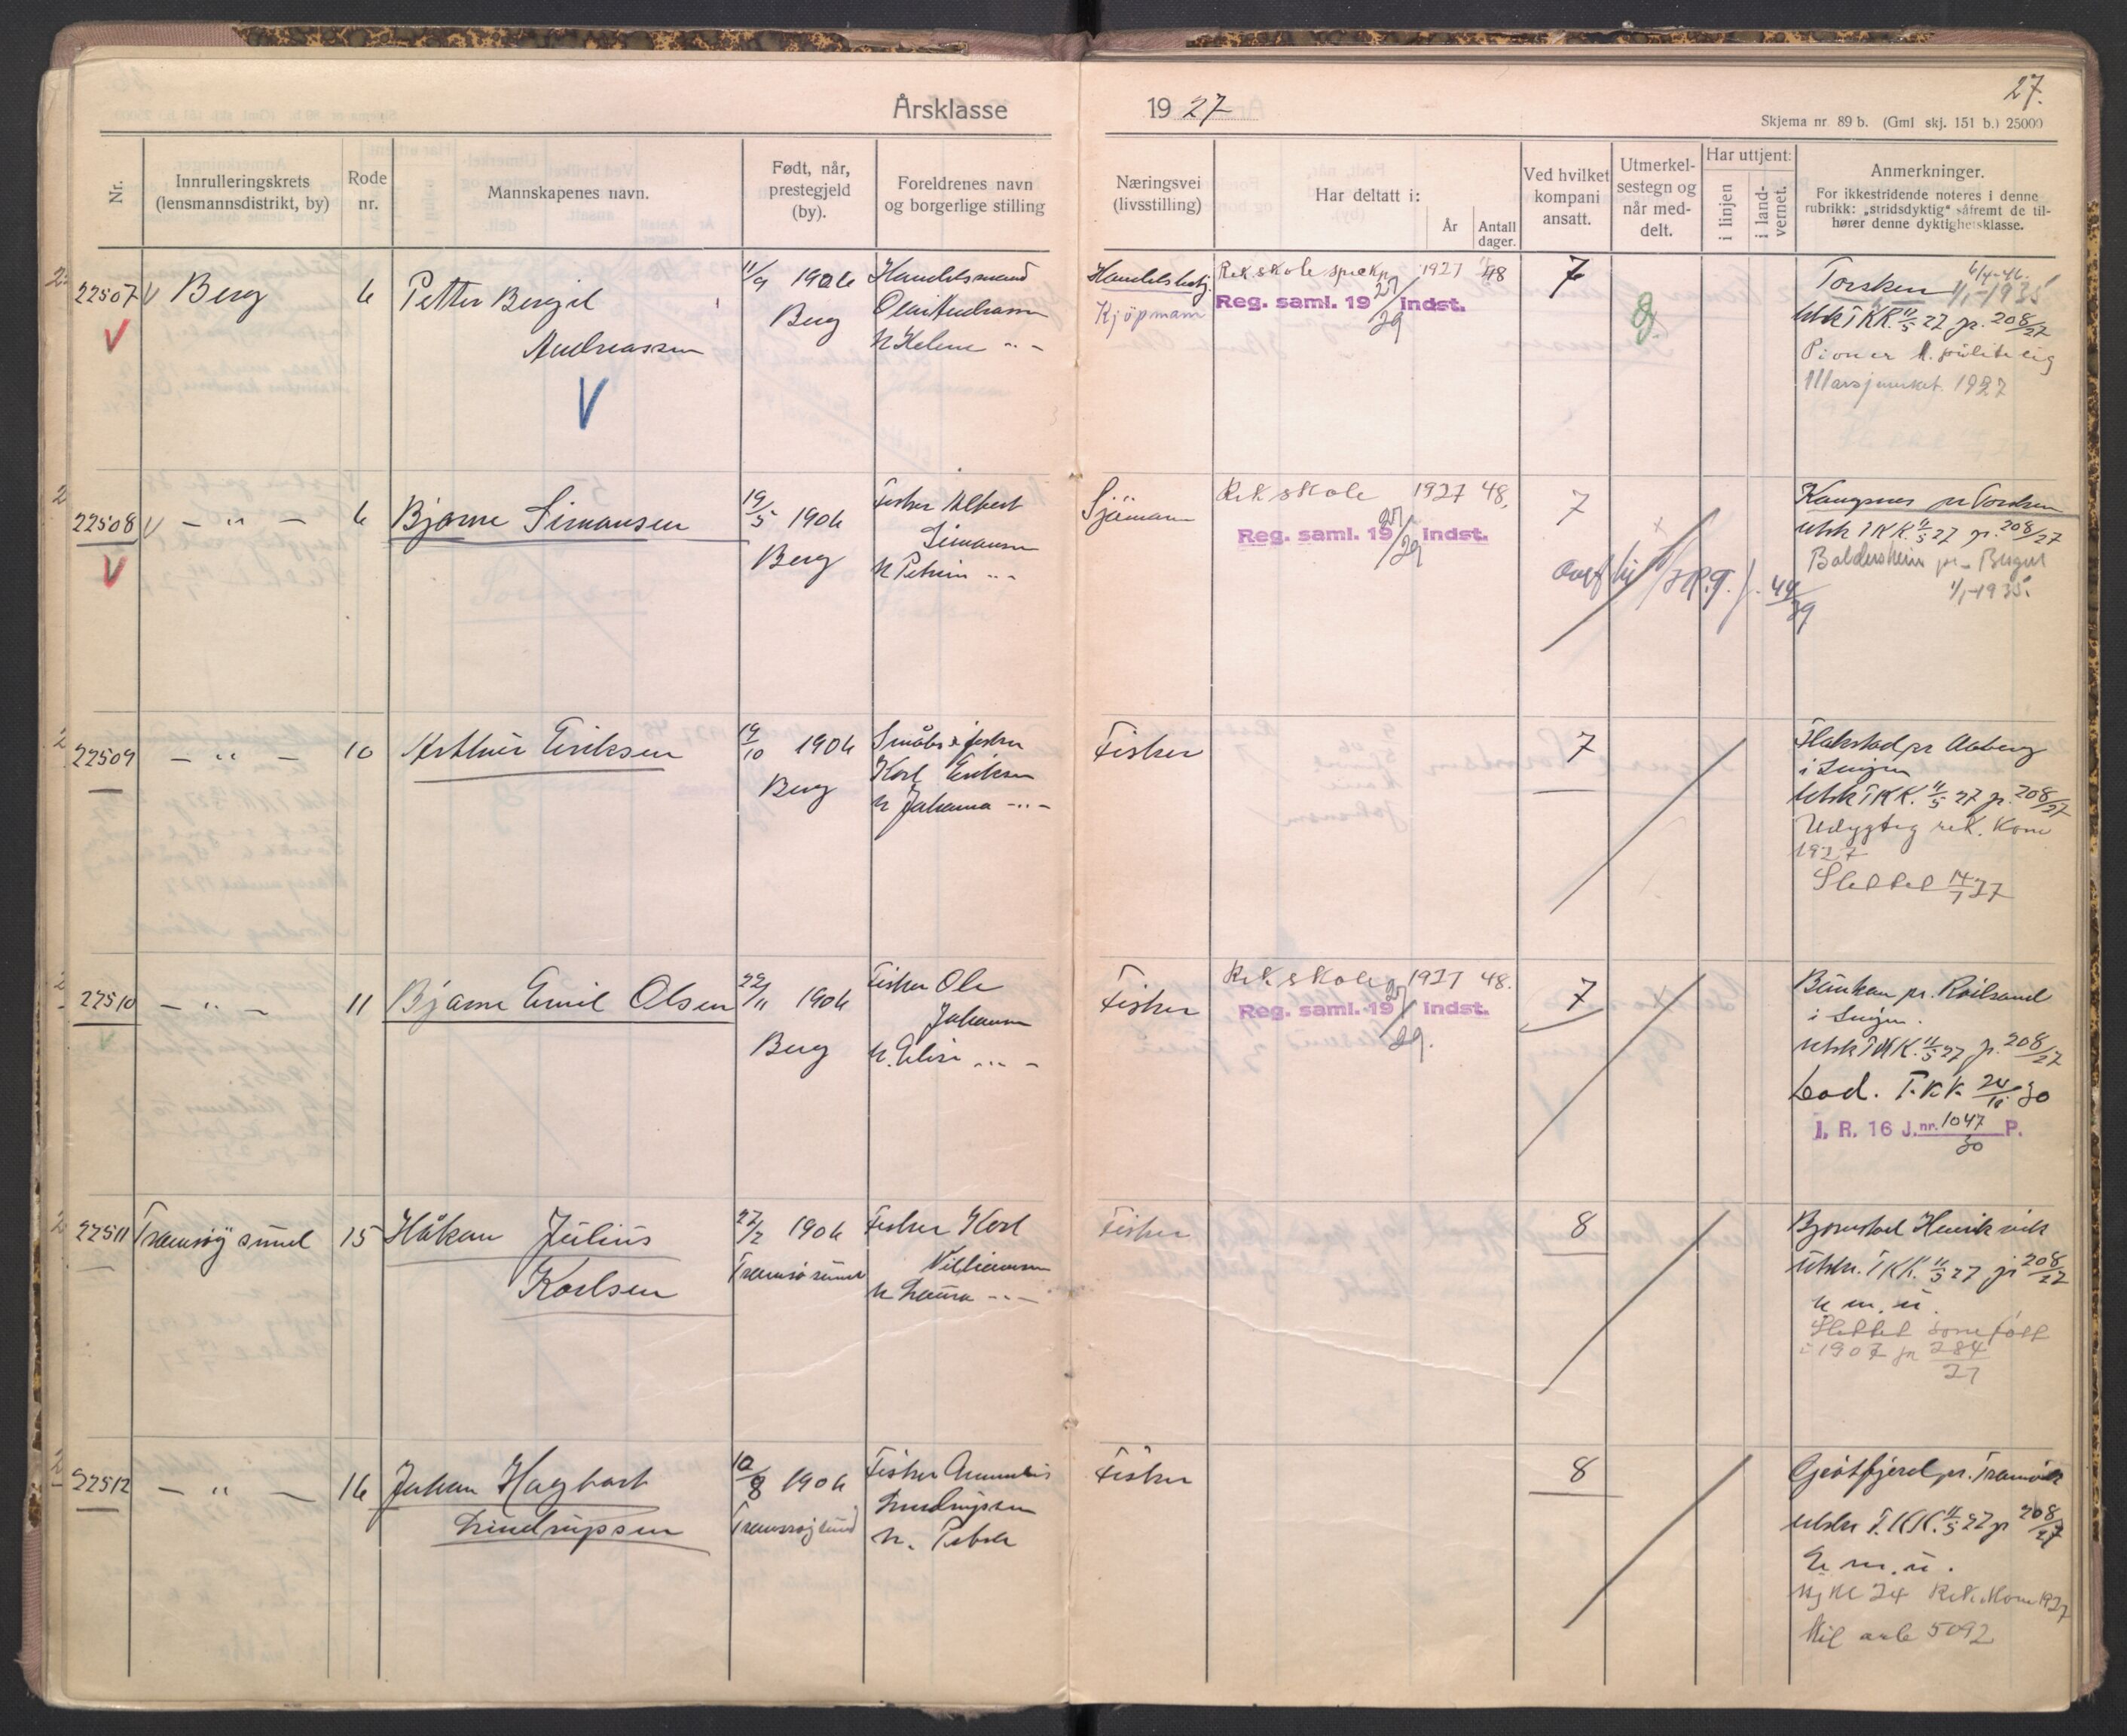 27.
Årsklasse 1927
Skjema nr. 89 b. (Gml skj. 151 b.) 25000
Nr.
Innrulleringskrets
(lensmannsdistrikt, by)
Rode
nr.
Mannskapenes navn.
Født, når,
prestegjeld
(by).
Foreldrenes navn
og borgerlige stilling
Næringsvei
(livsstilling)
Har deltatt i:
År
Antall
dager.
Ved hvilket
kompani
ansatt.
Utmerkel-
sestegn og
når med-
delt.
Har uttjent:
i linjen
i land-
vernet.
Anmerkninger.
For ikkestridende noteres i denne
rubrikk: „stridsdyktig“ såfremt de til-
hører denne dyktighetsklasse.
2
22507 V Berg
6
Petter Bergit
Andreassen
V
V
11/9 1906
Berg
Handelsmand
Olai Andreassen
H Helene -"-
Handelsbetj.
Kjöpmann
Rek skole 1927 48
Reg. saml. 19 27/29 Indst.
7
Torsken 1/1-1935
Utsk TKK. 11/5 27 jr. 208/27
Pioner
Marsjmerket 1927
2
22508 V - " -
V
6
Bjarne Simonsen
19/5 1906
Berg
Fisker Albert
Simonsen
H Petrine -"-
Sjömann
Rek skole 1927 48.
Reg. saml. 19 27/29 Indst.
7
44/39
Kongsnes pr Torsken
Utsk TKK. 11/5 27 jr. 208/27
1/1-1935.
2
22509 - " -
10
Arthur Eriksen
19/10 1906
Berg
Småbr & fisker
Karl Eriksen
H Johanna -"-
Fisker
7
Flakstad pr Aaberg
i Senjen
Utsk TKK. 11/5 27 jr. 208/27
Udygtig rek. Kom
1927
Slettet 14/7 27
2
22510 - " -
11
Bjarne Emil Olsen
22/11 1906
Berg
Fisker Ole
Johansen
H. Elise -"-
Fisker
Rek skole 1927 48.
Reg. saml. 19 27/29. Indst.
7
i Senjen.
Utsk TKK. 11/5 27 jr. 208/27
T.KK. 24/10 30
I. R. 16 J.nr. 1047/30 P.
2
22511 Tromsöysund
15
Håkon Julius
Karlsen
27/2 1906
Tromsösund
Fisker Karl
Villiamsen
H Laura -"-
Fisker
8
Bjornstad Henrikvik
Utskr. TKK. 11/5 27 jr 208/27
H m. u.
Slettet som født
i 1907 jr 284/27
2
22512 - " -
16
Johan Hagbart
Lindrupsen
10/8 1906
Tromsøysund
Fisker
Lindrupsen
H. Petra
Fisker
8
Grötfjord pr. Tromvik
Utskr T.KK. 11/5 27 jr 208/27
H m. u.
24 Rek. Kom 1927
Mil arb 5092